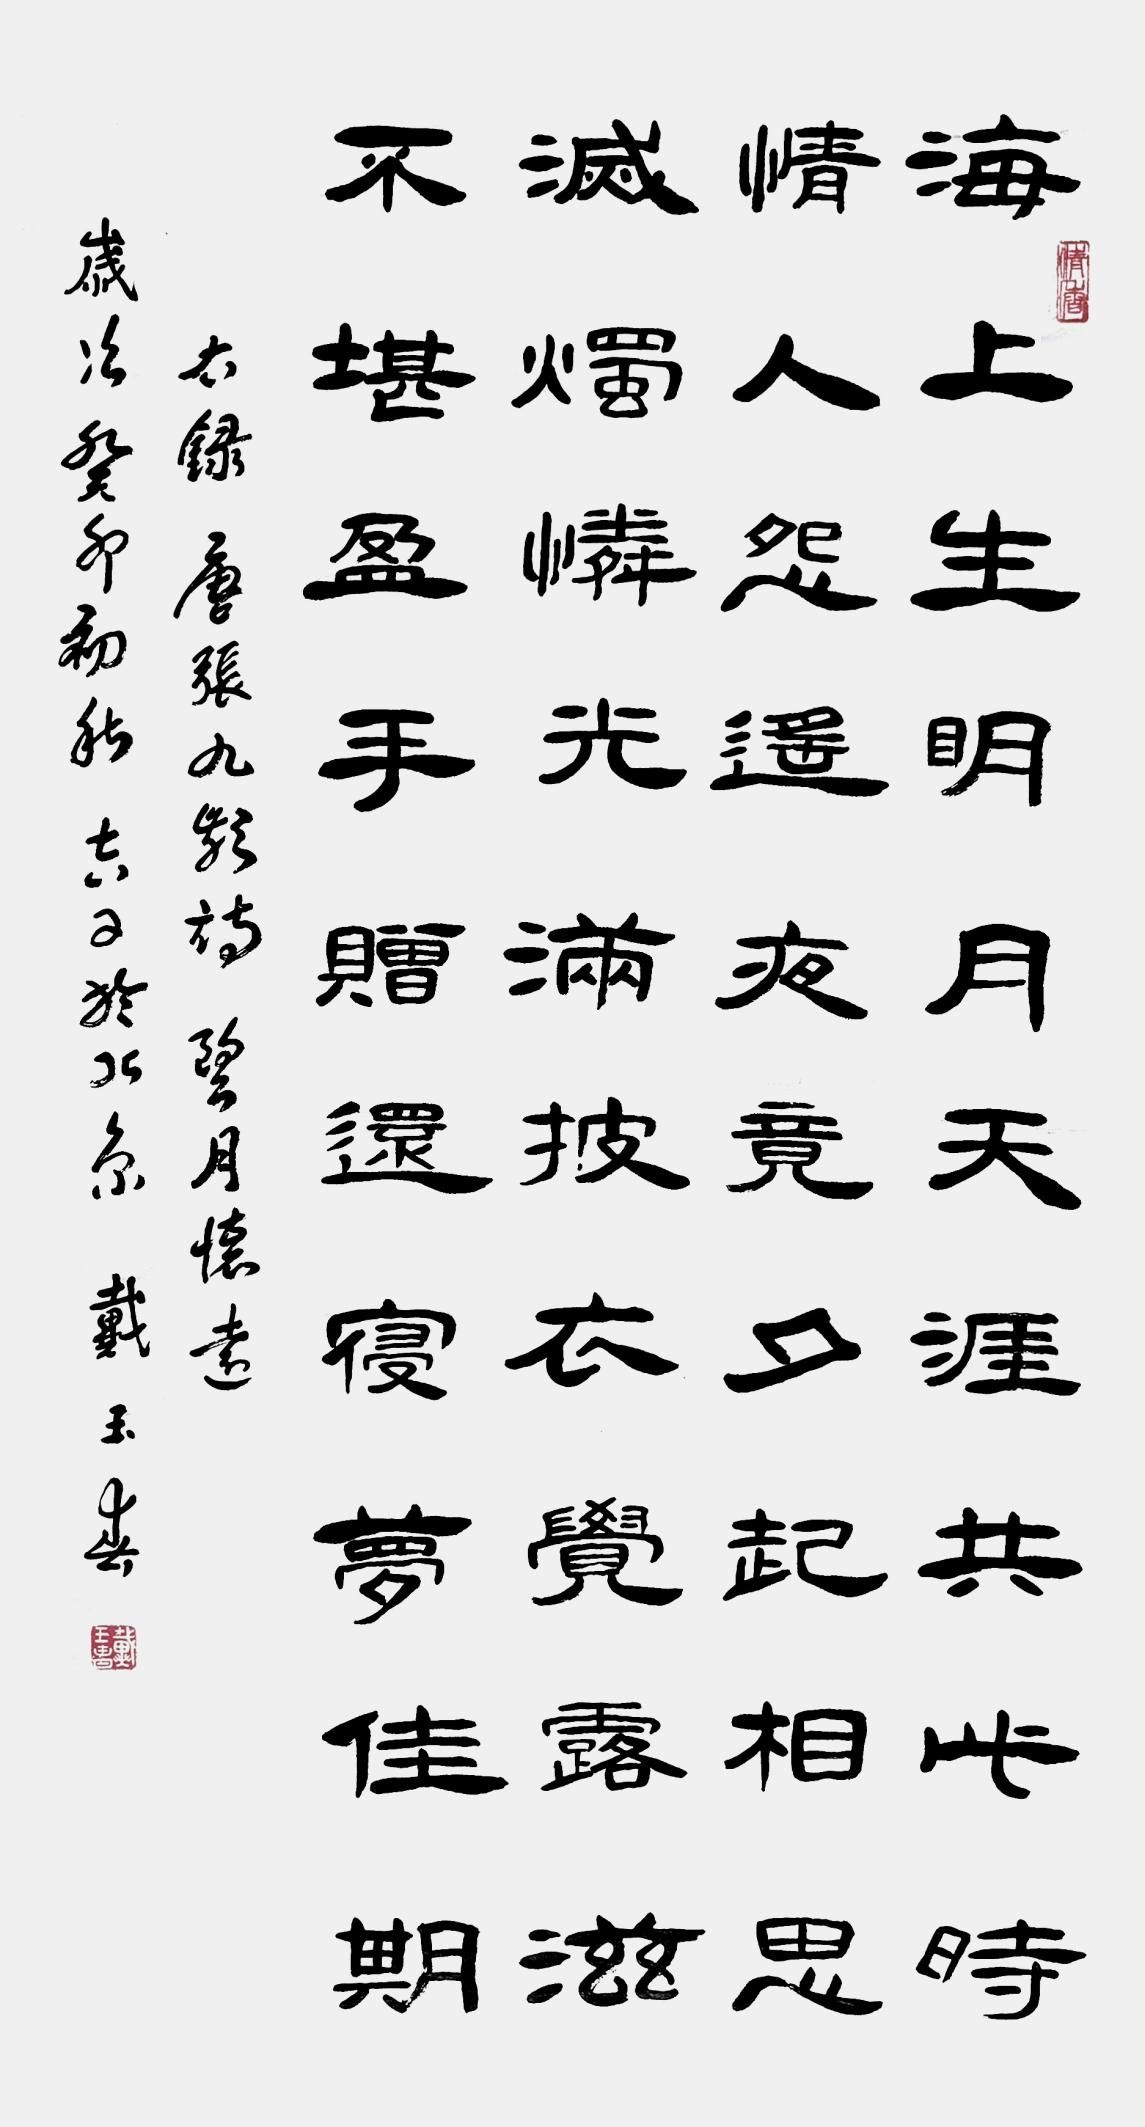 海上生明月天涯共此時
情人怨遙夜竟夕起相思
滅燭憐光滿披衣覺露滋
不堪盈手贈還寢夢佳期
右錄 唐張九齡詩 望月懷遠
歲次癸卯初秋 吉日於北京 戴玉春